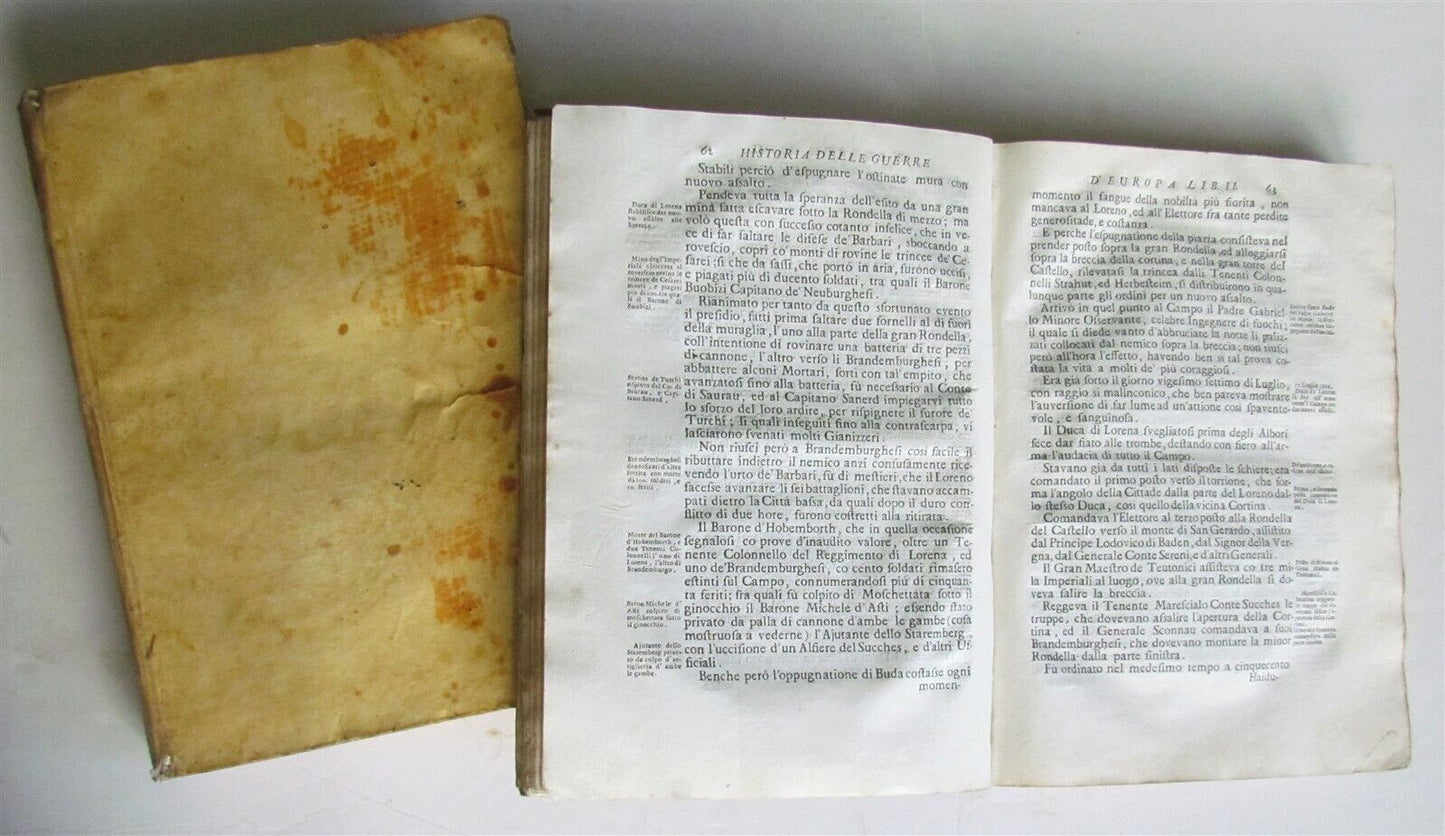 62 HISTORIA DELLE GUERRE
Stabilì perciò d'eſpugnare l'oſtinate mura con
nuovo aſsalto.
Pendeva tutta la ſperanza dell'eſito da una gran
mina fatta eſcavare ſotto la Rondella di mezzo; ma
volò queſta con ſucceſſo cotanto infelice, che in ve-
ce di far ſaltare le difeſe de'Barbari, sboccando a
roveſcio, coprì co'monti di rovine le trincee de'Ce-
ſarei: ſi che da ſaſſi, che portò in aria, furono ucciſi,
e piagati più di ducento ſoldati, tra quali il Barone
Buobizi Capitano de'Neuburgheſi.
Rianimato per tanto da queſto sfortunato evento
il preſidio, fatti prima ſaltare due fornelli al di fuori
della muraglia, l'uno alla parte della gran Rondella,
coll'intentione di rovinare una batteria di tre pezzi
di cannone, l'altro verſo li Brandemburgheſi, per
abbattere alcuni Mortari, ſortì con tal'empito, che
avanzatoſi fino alla batteria, fù neceſſario al Conte
di Saurau, ed al Capitano Sanerd impiegarvi tutto
lo sforzo del loro ardire, per riſpignere il furore de'
Turchi; li quali inſeguiti fino alla contraſcarpa, vi
laſciarono ſvenati molti Gianizzeri.
Non riuſcì però a Brandemburgheſi così facile il
ributtare indietro il nemico anzi confuſamente rice-
vendo l'urto de'Barbari, fù di meſtieri, che il Loreno
faceſse avanzare li ſei battaglioni, che ſtavano accam-
pati dietro la Città baſsa, da quali dopo il duro con-
flitto di due hore, furono coſtretti alla ritirata.
Il Barone d'Hobemborth, che in queſta occaſione
ſegnaloſi co prove d'inaudito valore, oltre un Te-
nente Colonnello del Reggimento di Lorena, ed
uno de'Brandemburgheſi, co cento ſoldati rimaſero
eſtinti ſul Campo, connumerandoſi più di cinquan-
ta feriti; fra quali fù colpito di Moſchettata ſotto il
ginocchio il Barone Michele d'Aſti; eſsendo ſtato
privato da palla di cannone d'ambe le gambe (coſa
moſtruoſa a vederne) l'Ajutante dello Staremberg,
con l'ucciſione d'un Alfiere del Sucches, e d'altri Uf-
ficiali.
Benche però l'oppugnatione di Buda coſtaſse ogni
momen-
Duca di Lorena
ſtabiliſce dar nuo-
vo aſſalto alle
breccie.
Mina degl'Impe-
riali sboccata al
roveſcio
trincee de Ceſarei
morti, e piagati
il Barone di
Buobizi.
Sortita de Turchi
Saurau, e Capi-
tano Sanerd.
Brandemburgheſi
ſortita con morte
Morte del Barone
d'Hobemborth, e
due Tenenti Co-
lonnelli l'uno di
Lorena, l'altro di
Brandemburgo.
Baron Michele d'
Aſti colpito di
moſchettata ſotto
il ginocchio.
Ajutante dello
Staremberg priva-
to da colpo d'ar-
tigliaria d'ambe
le gambe.
D'EUROPA LIB. II. 63
momento il ſangue della nobiltà più fiorita, non
mancava al Loreno, ed all'Elettore fra tante perdite
generoſitade, e coſtanza.
E perche l'eſpugnatione della piazza conſiſteva nel
prender poſto ſopra la gran Rondella, ed alloggiarſi
ſopra la breccia della cortina, e nella gran torre del
Caſtello, rilevataſi la trincea dalli Tenenti Colon-
nelli Strahut, ed Herbeſteim, ſi diſtribuirono in qua-
lunque parte gli ordini per un nuovo aſſalto.
Arrivò in quel punto al Campo il Padre Gabriel-
lo Minore Oſservante, celebre Ingegnere di fuochi;
il quale ſi diede vanto d'abbruciare la notte li paliz-
zati collocati dal nemico ſopra la breccia; non riuſcì
però all'hora l'effetto, havendo ben sì tal prova co-
ſtata la vita a molti de' più coraggioſi.
Era già ſorto il giorno vigeſimo ſettimo di Luglio,
con raggio sì malinconico, che ben pareva moſtrare
l'auverſione di far lume ad un'attione così ſpavente-
vole, e ſanguinoſa.
Il Duca di Lorena ſvegliatoſi prima degli Albori
fece dar fiato alle trombe, deſtando con fiero all'ar-
ma l'audacia di tutto il Campo.
Stavano già da tutti i lati diſpoſte le ſchiere; era
comandato il primo poſto verſo il torrione, che for-
ma l'angolo della Cittade dalla parte del Loreno dal-
lo ſteſso Duca, così quello della vicina Cortina.
Comandava l'Elettore al terzo poſto alla Rondella
del Caſtello verſo il monte di San Gerardo, aſſiſtito
dal Principe Lodovico di Baden, dal Signor della Ver-
gna, dal Generale Conte Sereni, e d'altri Generali.
Il Gran Maeſtro de Teutonici aſſiſteva co tre mi-
la Imperiali al luogo, ove alla gran Rondella ſi do-
veva ſalire la breccia.
Reggeva il Tenente Mareſcialo Conte Sucches le
truppe, che dovevano aſſalire l'apertura della Cor-
tina, ed il Generale Sconnau comandava a ſuoi
Brandemburgheſi, che dovevano montare la minor
Rondella dalla parte ſiniſtra.
Fù ordinato nel medeſimo tempo a cinquecento
Baidu-